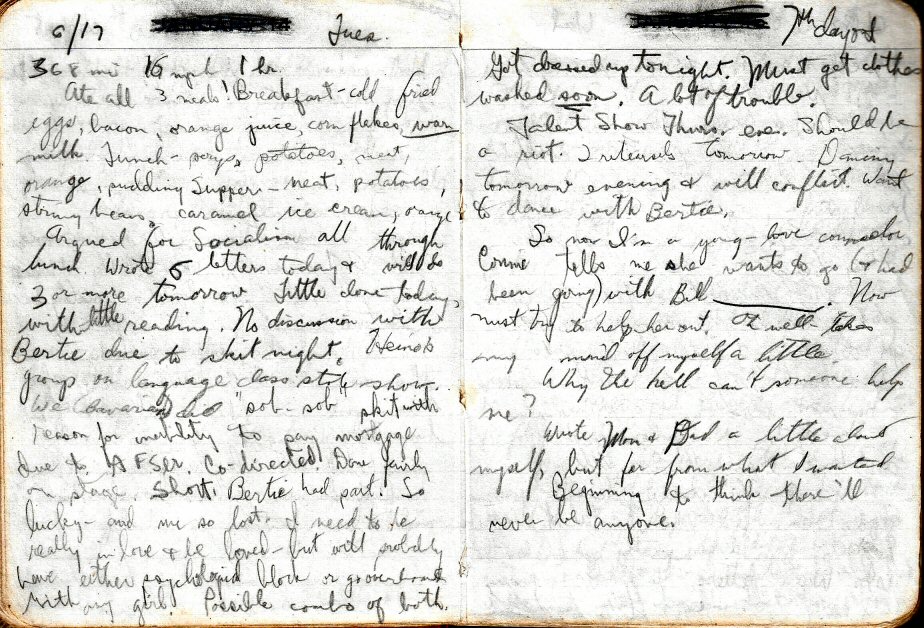 6/17 Tues.
368 mi 16 mph 1 hr.
Ate all 3 meals! Breakfast-cold fried
eggs, bacon, orange juice, corn flakes, warm
milk. Lunch- soup, potatoes, meat,
orange, pudding Supper:- meat, potatoes,
string beans, caramel ice cream, orange
Argued for Socialism all through
lunch. Wrote 6 letters today & will do
3 or more tomorrow. Little done today,
with little reading. No discussion with
Bertie due to skit night. Heino's
group on language class stole show.
We (Bavarian) did "sob-sob" skit with
reason for inability to pay mortgage
due to AFSer. Co-directed! Done fairly
on stage. Short. Bertie had part. So
lucky- and me so lost. I need to be
really in love & be loved- but will probably
have either psychological block or go overboard
with any girl. Possible combo of both.
7th day out
Got dressed up tonight. Must get clothes
washed soon. A lot of trouble.
Talent Show Thurs. eve. Should be
a riot. 2 rehersals tomorrow. Dancing
tomorrow evening & will conflict. Want
to dance with Bertie.
So now I'm a young-love counselor
Connie tells me she wants to go (& had
been going) with Bill. Now
must try to help her out. Oh well- takes
my mind off myself a little.
Why the hell can't someone help
me?
Wrote Mom & Dad a little about
myself, but far from what I wanted
Beginning to think there'll
never be anyone.